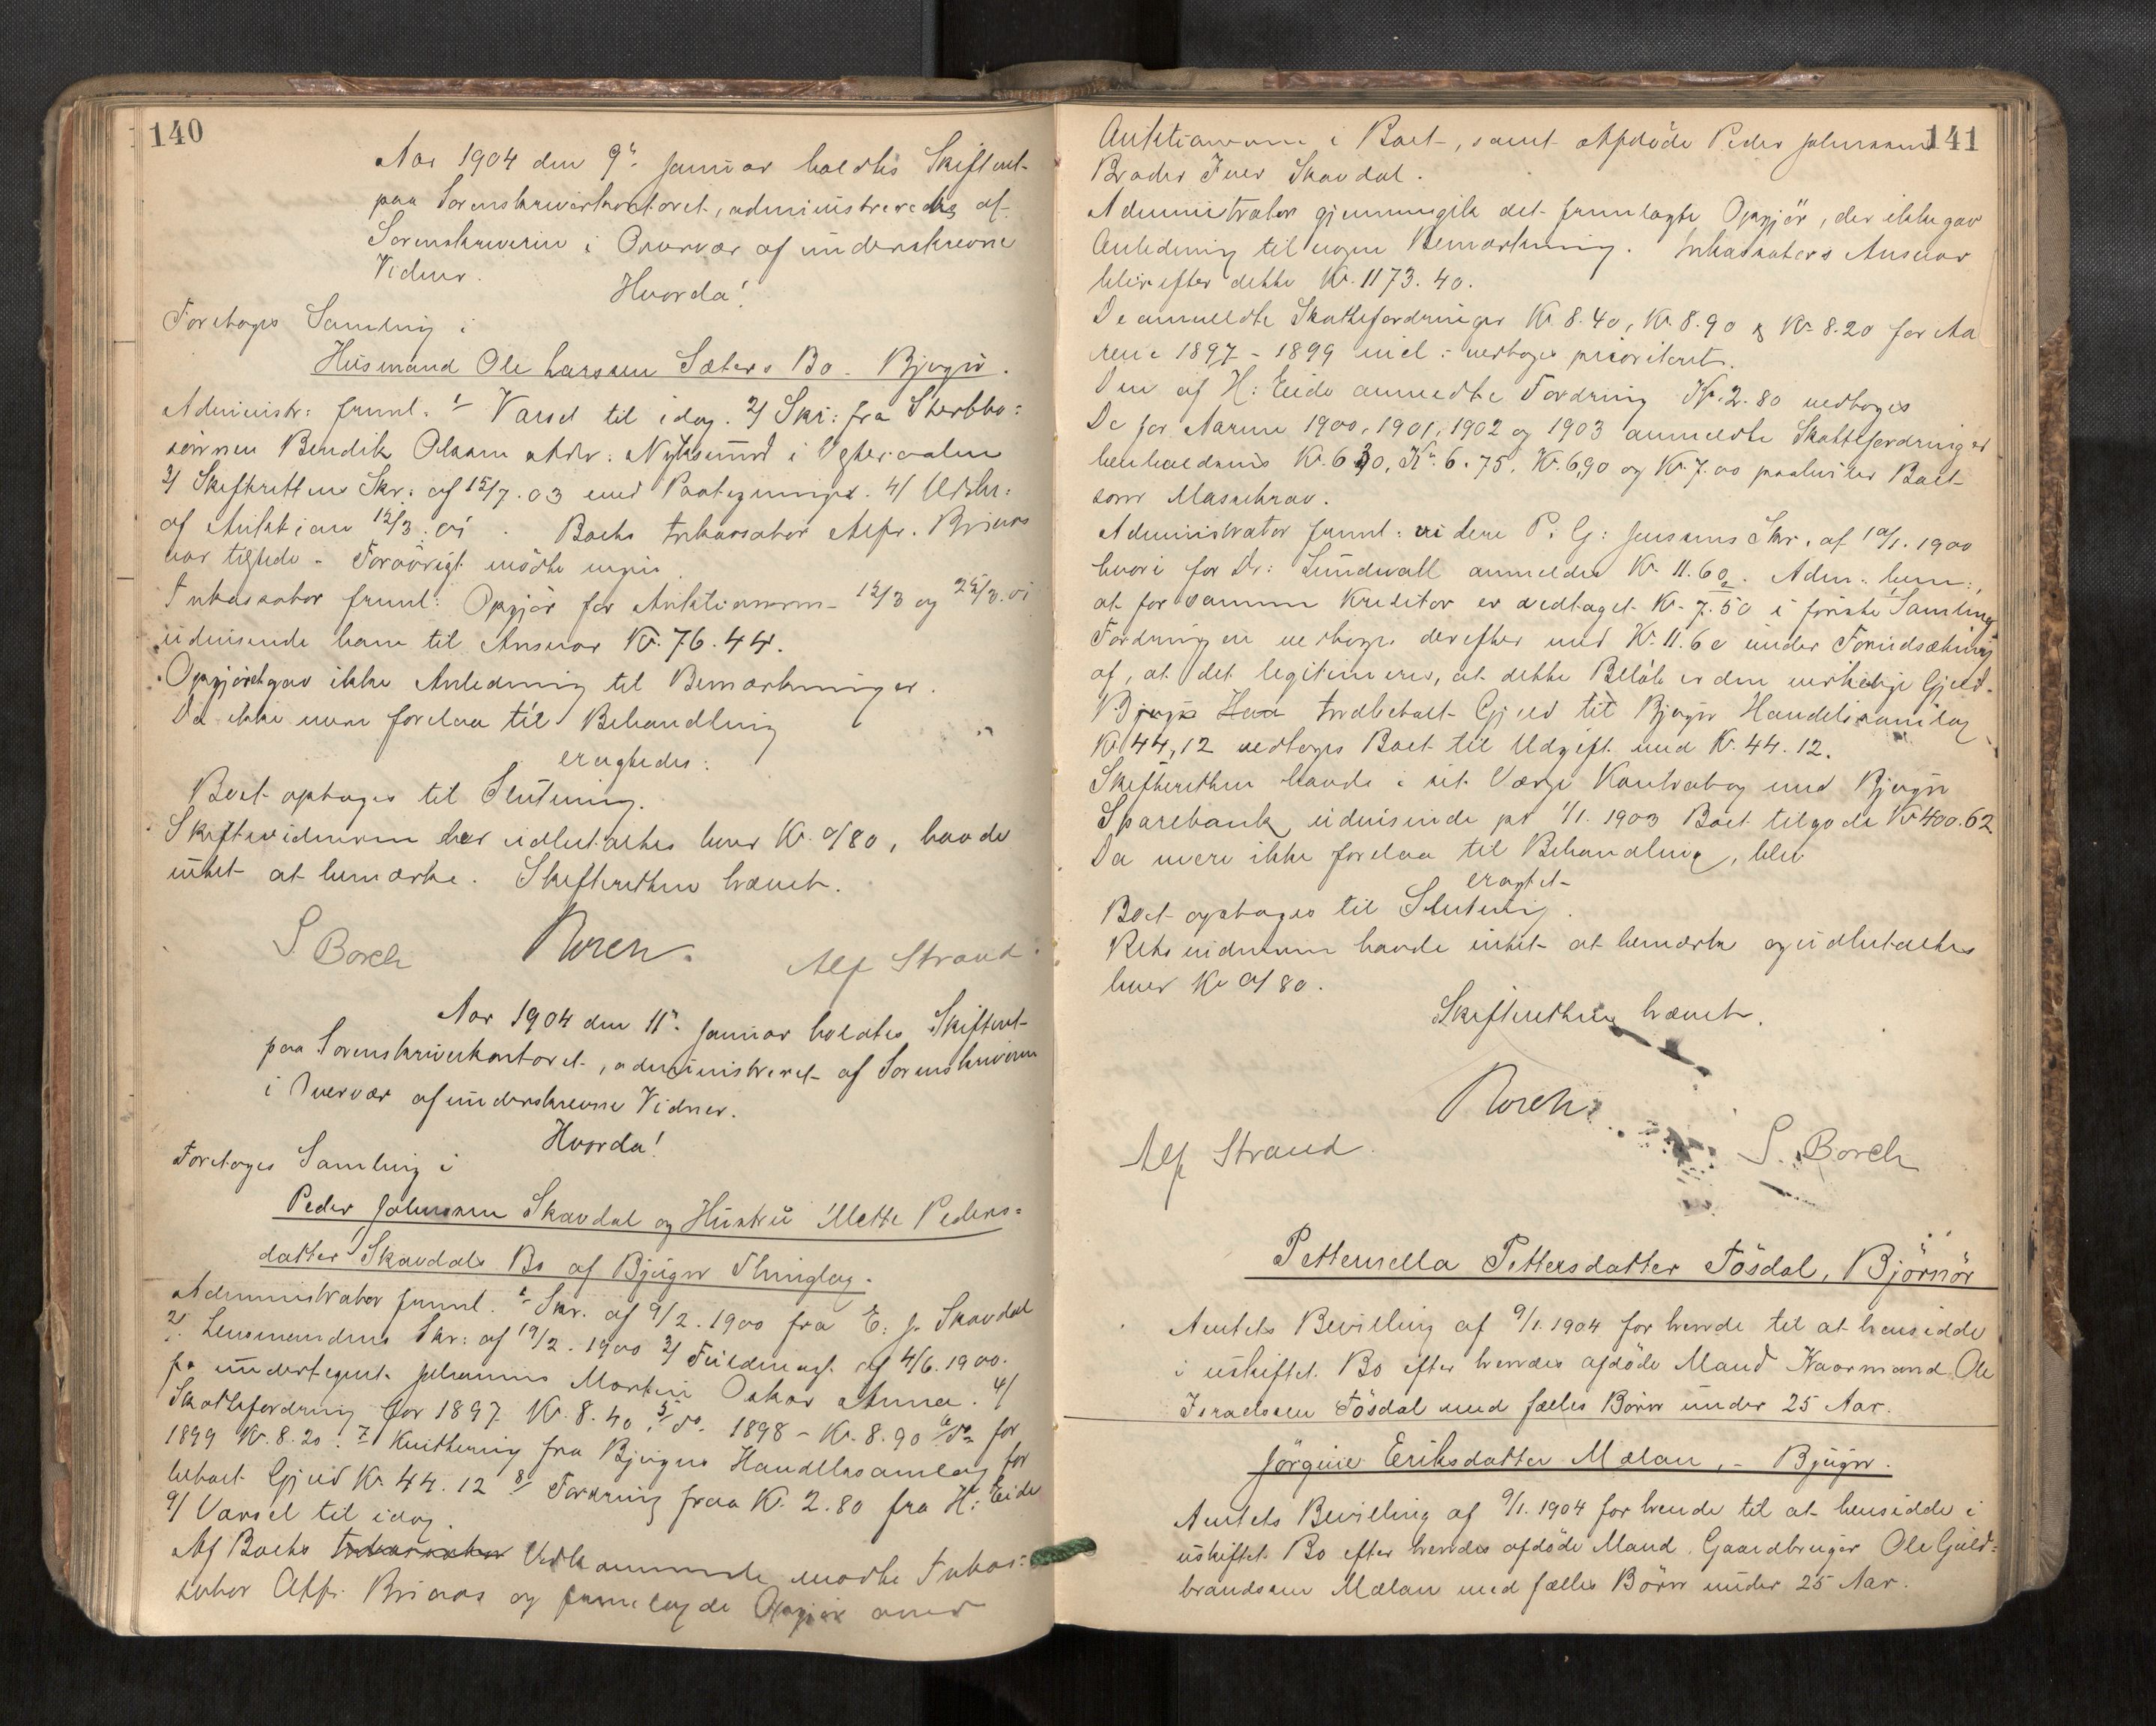 140
Aar 1904 den 9de Januar holdtes Skifteret
paa Sorenskriverkontoret, administreredes af
Sorenskriveren i Overvær af underskrevne
Vidner.
Hvorda!
Foretoges Samling i
Husmand Ole Larssen Sæters Bo - Bjugn.
Administr: freml. 1/ Varsel til idag. 2/ Skr: fra Sterbbo=
sönnen Bendik Olsen Adr: Nyksund i Vesteraalen
3/ Skifterettens Skr: af 15/7.03 med Paategninger. 4/ Udskr:
af Auktion 12/3.01. Boets Inkassator Alfr. Brinos
var tilstede - Forövrigt mödte ingen
Inkassator freml: Opgjör for Auktionerne 12/3 og 25/3.01
udvisende ham til Ansvar Kr. 76.44.
Opgjöret gav ikke Anledning til Bemærkninger.
Da ikke mere forelaa til Behandling
eragtedes:
Boet optages til Slutning.
Skiftevidnerne her udbetaltes hver Kr. 0/80, havde
intet at bemærke. Skifteretten hævet.
S Borch Borch. Alf Strand
Aar 1904 den 11te Januar holdtes Skifteret
paa Sorenskriverkontoret, administreret af Sorenskriveren
i Overvær af underskrevne Vidner.
Hvorda!
Foretoges Samling i
Peder Johnsen Skavdal og Hustru Mette Peders=
datter Skavdals Bo af Bjugn Thinglag.
Administrator freml. 1/ Skr. af 9/2.1900 fra E: J. Skavdal
2/ Lensmandens Skr: af 19/2.1900 3/ Fuldmagt af 4/6.1900.
fra undertegnet Johannes Martin Oskar Anna. 4/
Skattefordring for 1897 Kr. 8.40 5/ do. 1898 - Kr. 8.90 6/ do for
1899 Kr. 8.20. 7/ Kvittering fra Bjugns Handelssamlag for
betalt Gjeld Kr. 44.12 8/ Fordring fra Kr. 2.80 fra H: Eide
9/ Varsel til idag.
Af Boets Inkassator Vedkommende mødte Inkas=
sator Alfr. Brinos og fremlagde Opgjör over
141
Auktionerne i Boet, samt Afdöde Peder Johnsens
Broder Iver Skavdal.
Administrator gjennemgik det fremlagte Opgjör, der ikke gav
Anledning til nogen Bemærkning. Inkassators Ansvar
blir efter dette Kr. 1173.40.
De anmeldte Skattefordringer Kr 8.40, Kr. 8.90 & Kr. 8.20 for Aa
rene 1897 - 1899 incl: vedtages prioriteret.
Den af H: Eide anmeldte Fordring Kr. 2.80 vedtoges
De for Aarene 1900, 1901, 1902 og 1903 anmeldte Skattefordringer
henholdsvis Kr. 6.30, Kr. 6.75, Kr. 6,90 og Kr. 7.00 paahviler Boet
som Massekrav.
Administrator freml: videre P: G: Jensens Skr. af 10/1.1900
hvori for Dr: Lundwall anmeldes Kr. 11.60. Adm: bem:,
at for samme Kreditor er vedtaget Kr. 7.50 i förste Samling
Fordringen vedtages derefter med Kr. 11.60 under Forudsætning
af, at det legitimeres, at dette Belöb er den virkelige Gjeld.
Bjugn Han Indbetalt Gjeld til Bjugn Handelssamlag
Kr 44,12 vedtages Boet til Udgift med Kr. 44.12.
Skifteretten havde i sit Værge Kontrabog med Bjugn
Sparebank udvisende pr 1/1.1903 Boet tilgode Kr 400.62
Da mere ikke forelaa til Behandling, blev
eragtet
Boet optages til Slutning.
Retsvidnerne havde intet at bemærke og udbetaltes
hver Kr 0/80.
Skifteretten hævet.
Borch
Alf Strand S. Borch
Petternella Pettersdatter Tösdal, Björnör
Amtets Bevilling af 9/1.1904 for hende til at hensidde
i uskiftet Bo efter hendes afdöde Mand Kaarmand Ole
Israelsen Tösdal med fælles Börn under 25 Aar.
Jörgine Eriksdatter Mælan, - Bjugn.
Amtets Bevilling af 9/1.1904 for hende til at hensidde i
uskiftet Bo efter hendes afdöde Mand Gaardbruger Ole Guld=
brandsen Mælan med fælles Börn under 25 Aar.